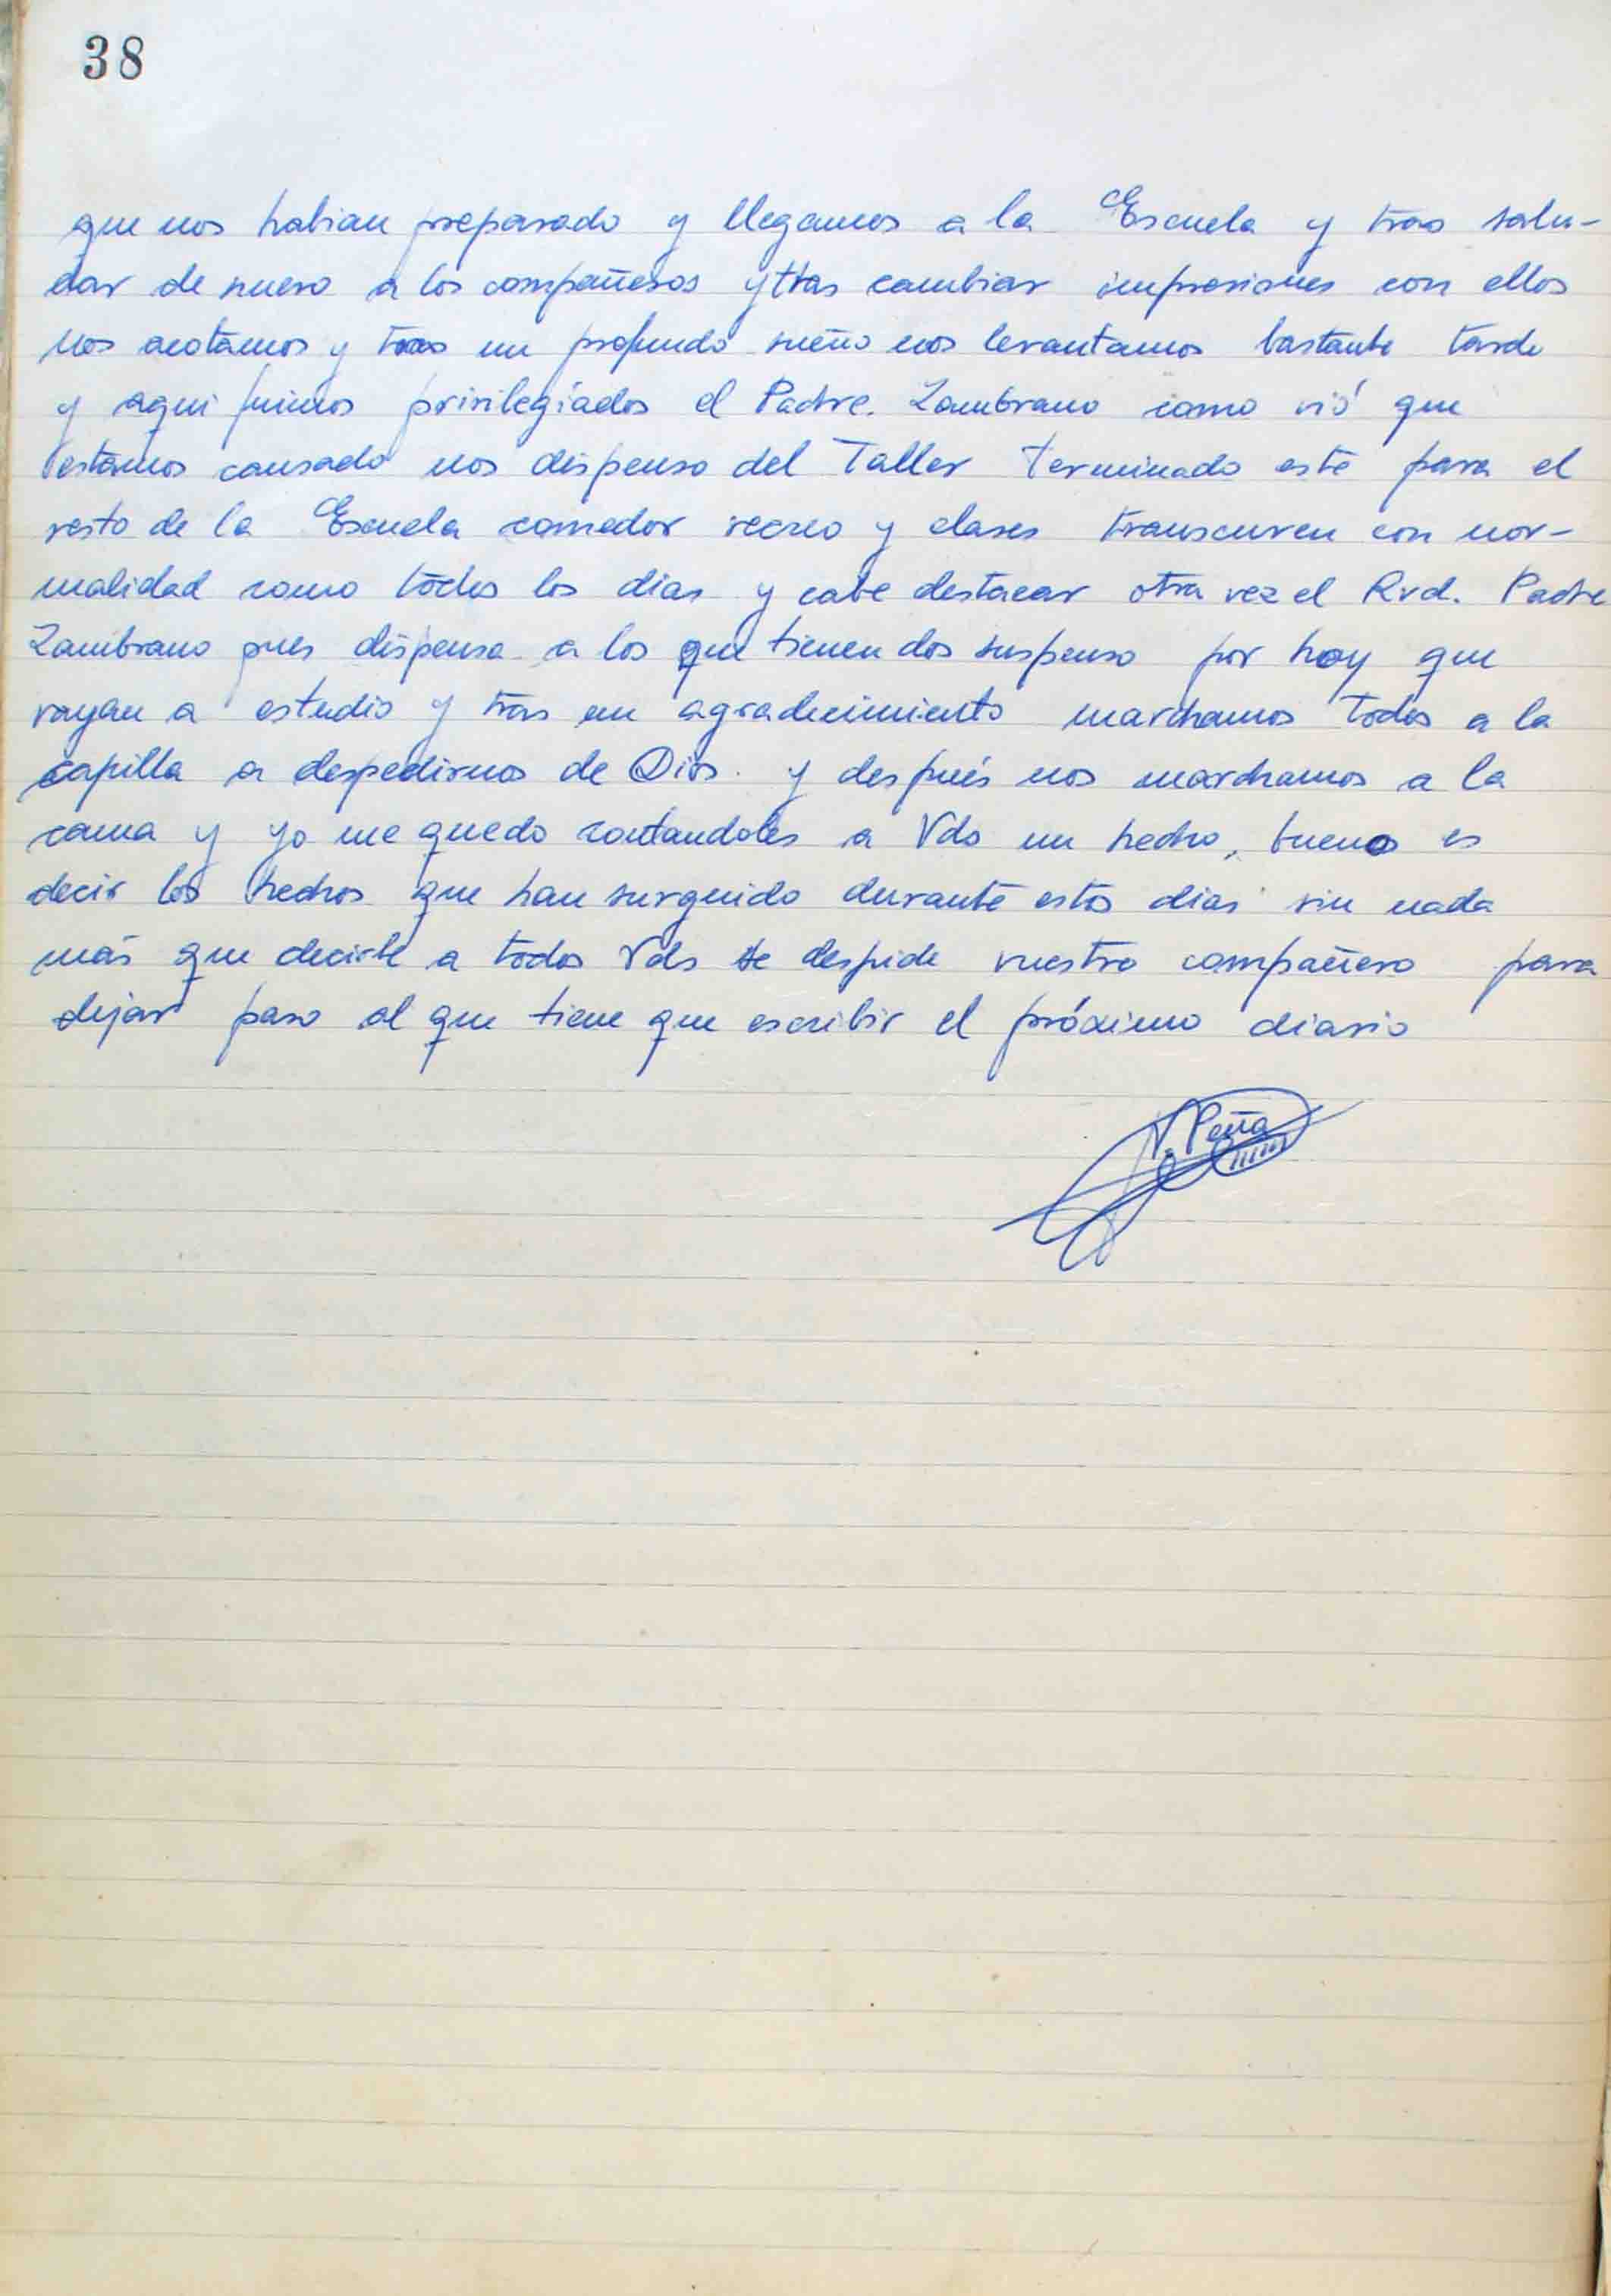 38
que nos habian preparado y llegamos a la Escuela y tras salu-
dar de nuevo a los compañeros y tras cambiar impresiones con ellos
nos acotamos y tras un profundo sueño nos levantamos bastante tarde
y aqui fuimos privilegiados el Padre. Zambrano como vió que
estamos cansado nos dispenso del Taller terminado este para el
resto de la Escuela comedor recreo y clases transcurren con nor-
malidad como todos los dias y cabe destacar otra vez el Rvd. Padre
Zambrano pues dispensa a los que tienen dos suspenso por hoy que
vayan a estudio y tras un agradecimiento marchamos todos a la
capilla a despedirnos de Dios. y después nos marchamos a la
cama y yo me quedo contandoles a Vds un hecho, bueno es
decir los hechos que han surguido durante estos dias sin nada
más que decirle a todos Vds se despide vuestro compañero para
dejar paso al que tiene que escribir el próximo diario
V. Peña